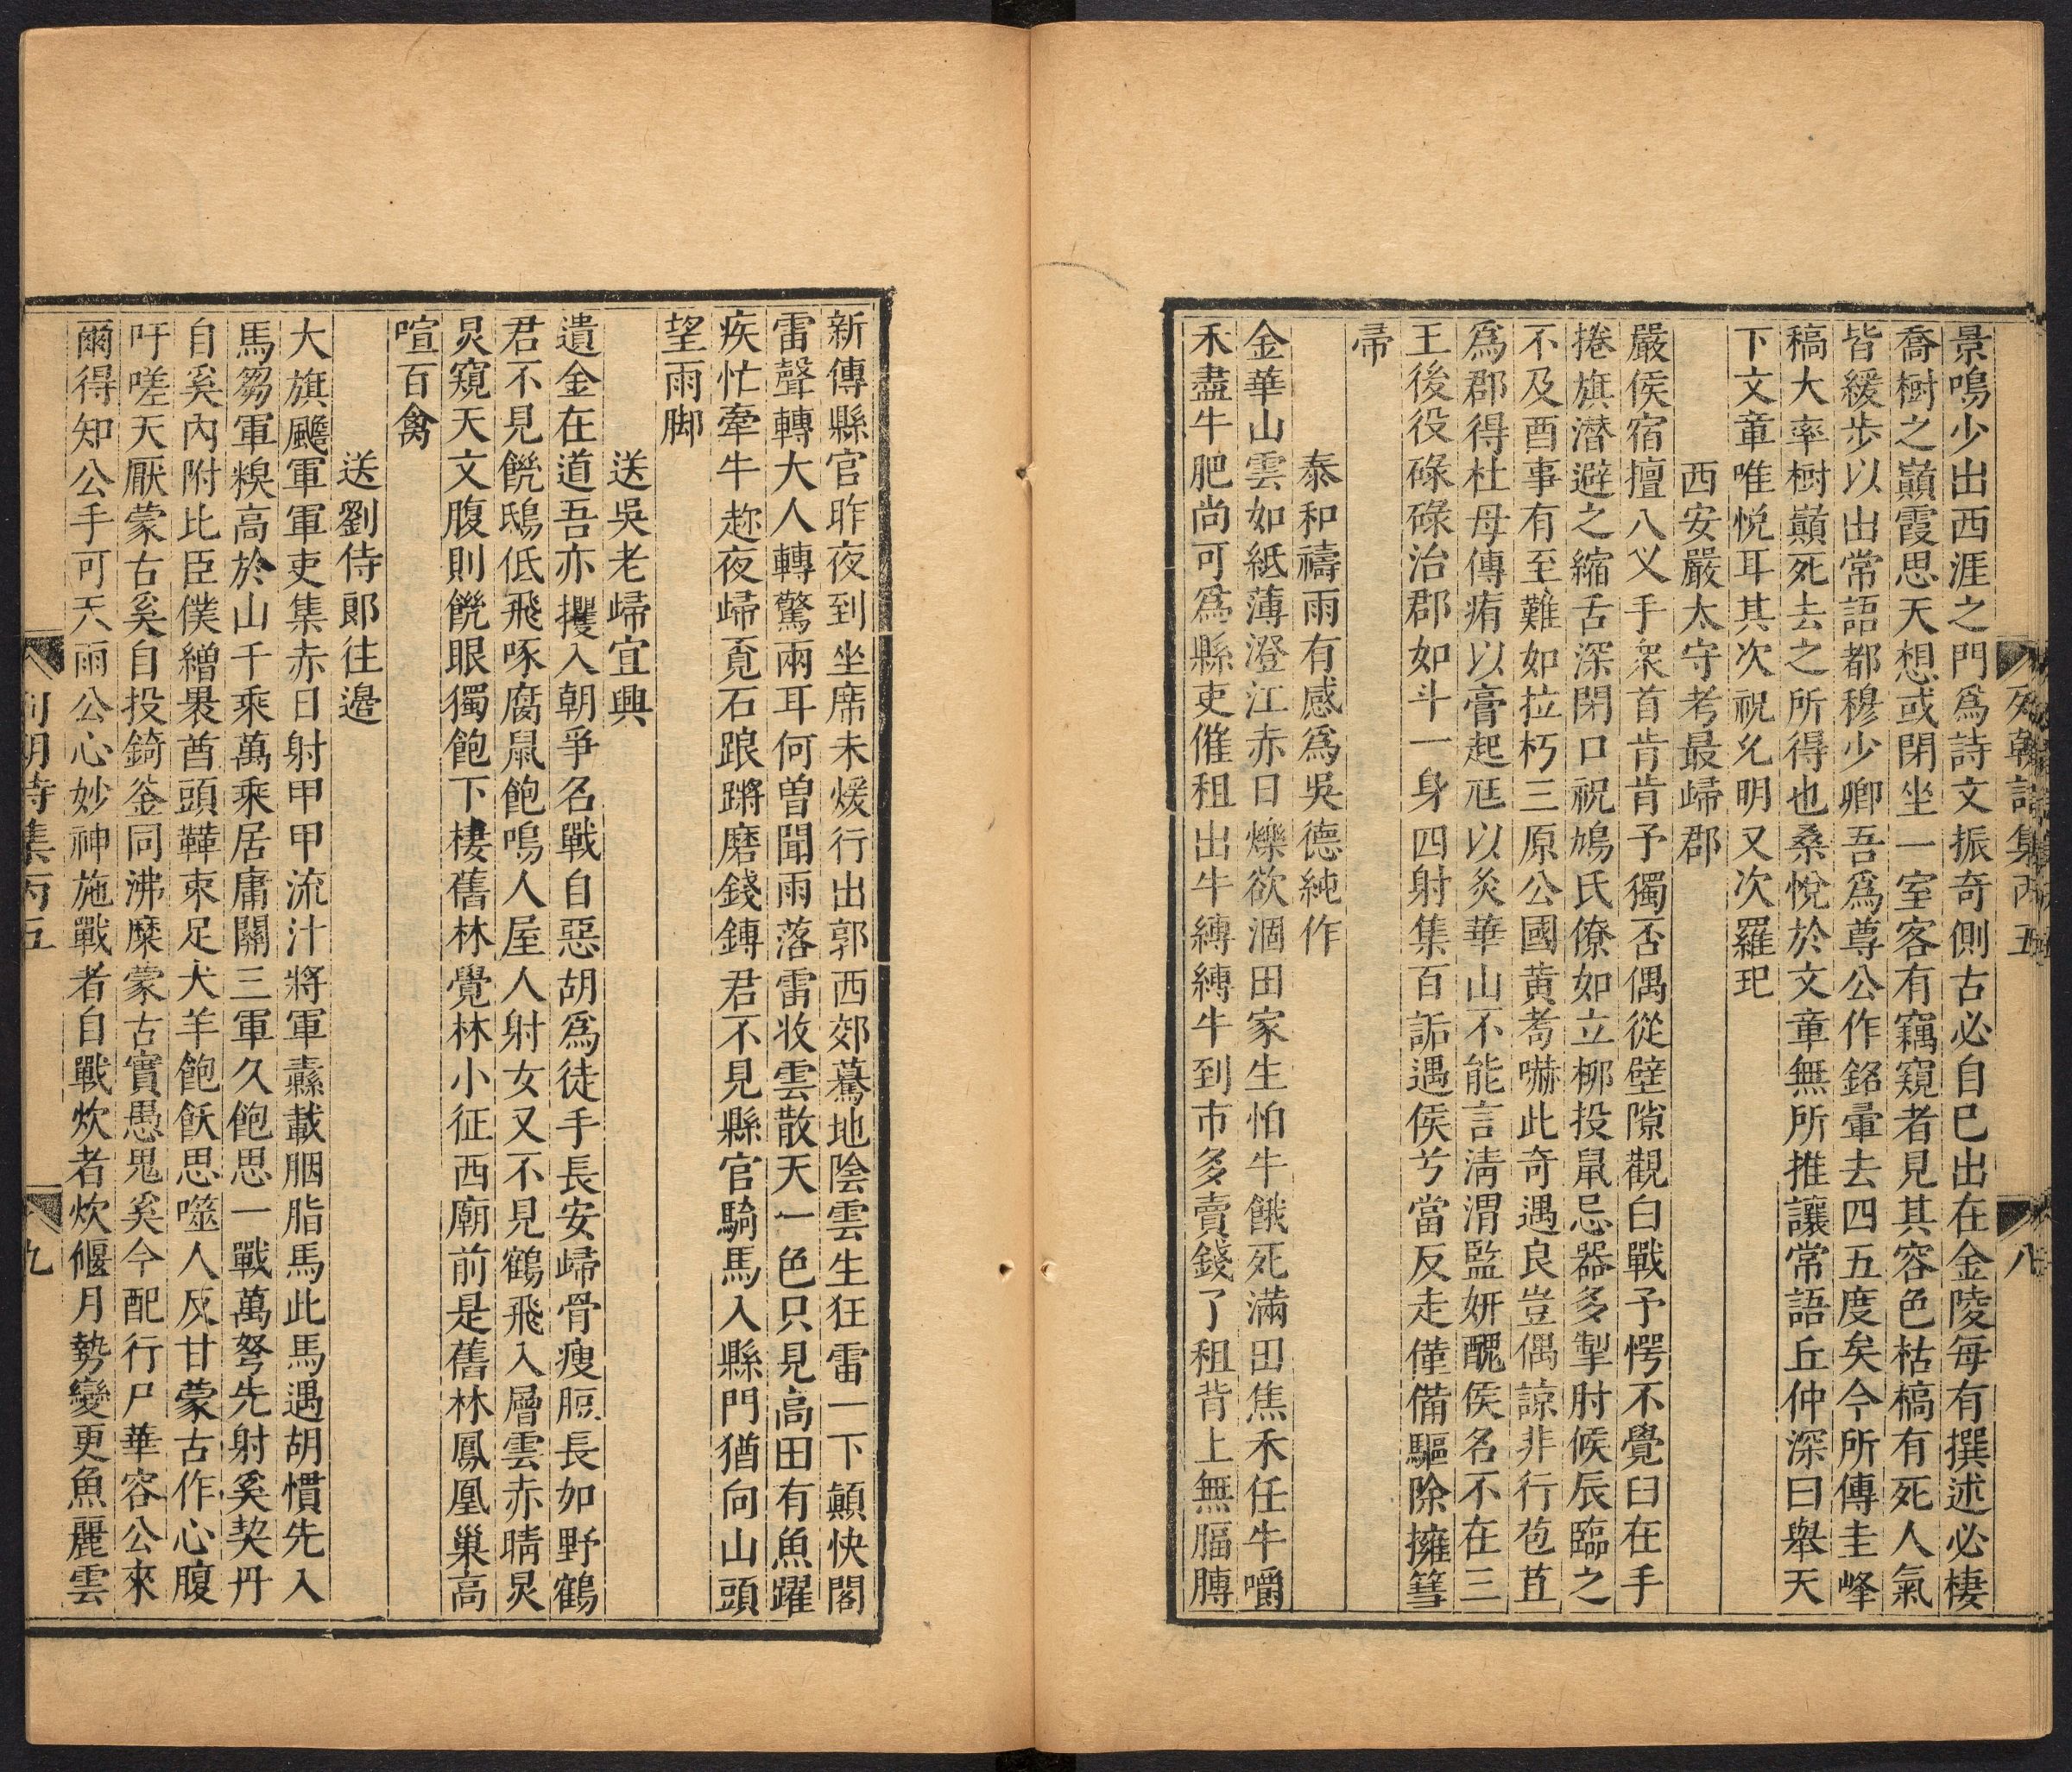 景鳴少出西涯之門爲詩文振奇側古必自巳出在金陵每有撰述必棲
喬樹之巔霞思天想或閉坐一室客有竊窺者見其容色枯槁有死人氣
皆緩步以出常語都穆少卿吾爲尊公作銘暈去四五度矣今所傳圭峰
稿大率樹巔死去之所得也桑悅於文章無所推讓常語丘仲深曰舉天
下文章唯悅耳其次祝允明又次羅玘
西安嚴太守考最歸郡
嚴侯宿擅八乂手衆首肯肯予獨否偶從壁隙觀白戰予愕不覺臼在手
捲旗潜避之縮舌深閉口祝鳩氏僚如立柳投鼠忌器多掣肘候辰臨之
不及酉事有至難如拉朽三原公國黃耇嚇此奇遇良豈偶諒非行苞苴
爲郡得杜母傳痏以膏起尫以灸華山不能言淸渭監妍醜侯名不在三
王後役碌碌治郡如斗一身四射集百詬遇侯兮當反走僅備驅除擁篲
帚
泰和禱雨有感爲吳德純作
金華山雲如紙薄澄江赤日爍欲涸田家生怕牛餓死滿田焦禾任牛嚼
禾盡牛肥尚可爲縣吏催租出牛縛縛牛到市多賣錢了租背上無膈膊
列朝詩集丙五
八
新傳縣官昨夜到坐席未煖行出郭西郊驀地陰雲生狂雷一下顛快閣
雷聲轉大人轉驚兩耳何曽聞雨落雷收雲散天一色只見高田有魚躍
疾忙牽牛趂夜歸覔石踉蹡磨錢鎛君不見縣官騎馬入縣門猶向山頭
望雨脚
送吳老歸宜興
遺金在道吾亦攫入朝爭名戰自惡胡爲徒手長安歸骨瘦脰長如野鶴
君不見饑鴟低飛啄腐鼠飽嗚人屋人射女又不見鶴飛入層雲赤睛炅
炅窺天文腹則饑眼獨飽下棲舊林覺林小征西廟前是舊林鳳凰巢高
喧百禽
送劉侍郎往邊
大旗颺軍軍吏集赤日射甲甲流汁將軍纛載胭脂馬此馬遇胡慣先入
馬芻軍糗高於山千乘萬乘居庸關三軍久飽思一戰萬弩先射奚契丹
自奚內附比臣僕繒褁酋頭鞾束足犬羊飽飫思噬人反甘蒙古作心腹
吁嗟天厭蒙古奚自投錡釜同沸糜蒙古實愚鬼奚今配行尸華容公來
爾得知公手可天雨公心妙神施戰者自戰炊者炊偃月勢變更魚麗雲
列朝詩集丙五
九